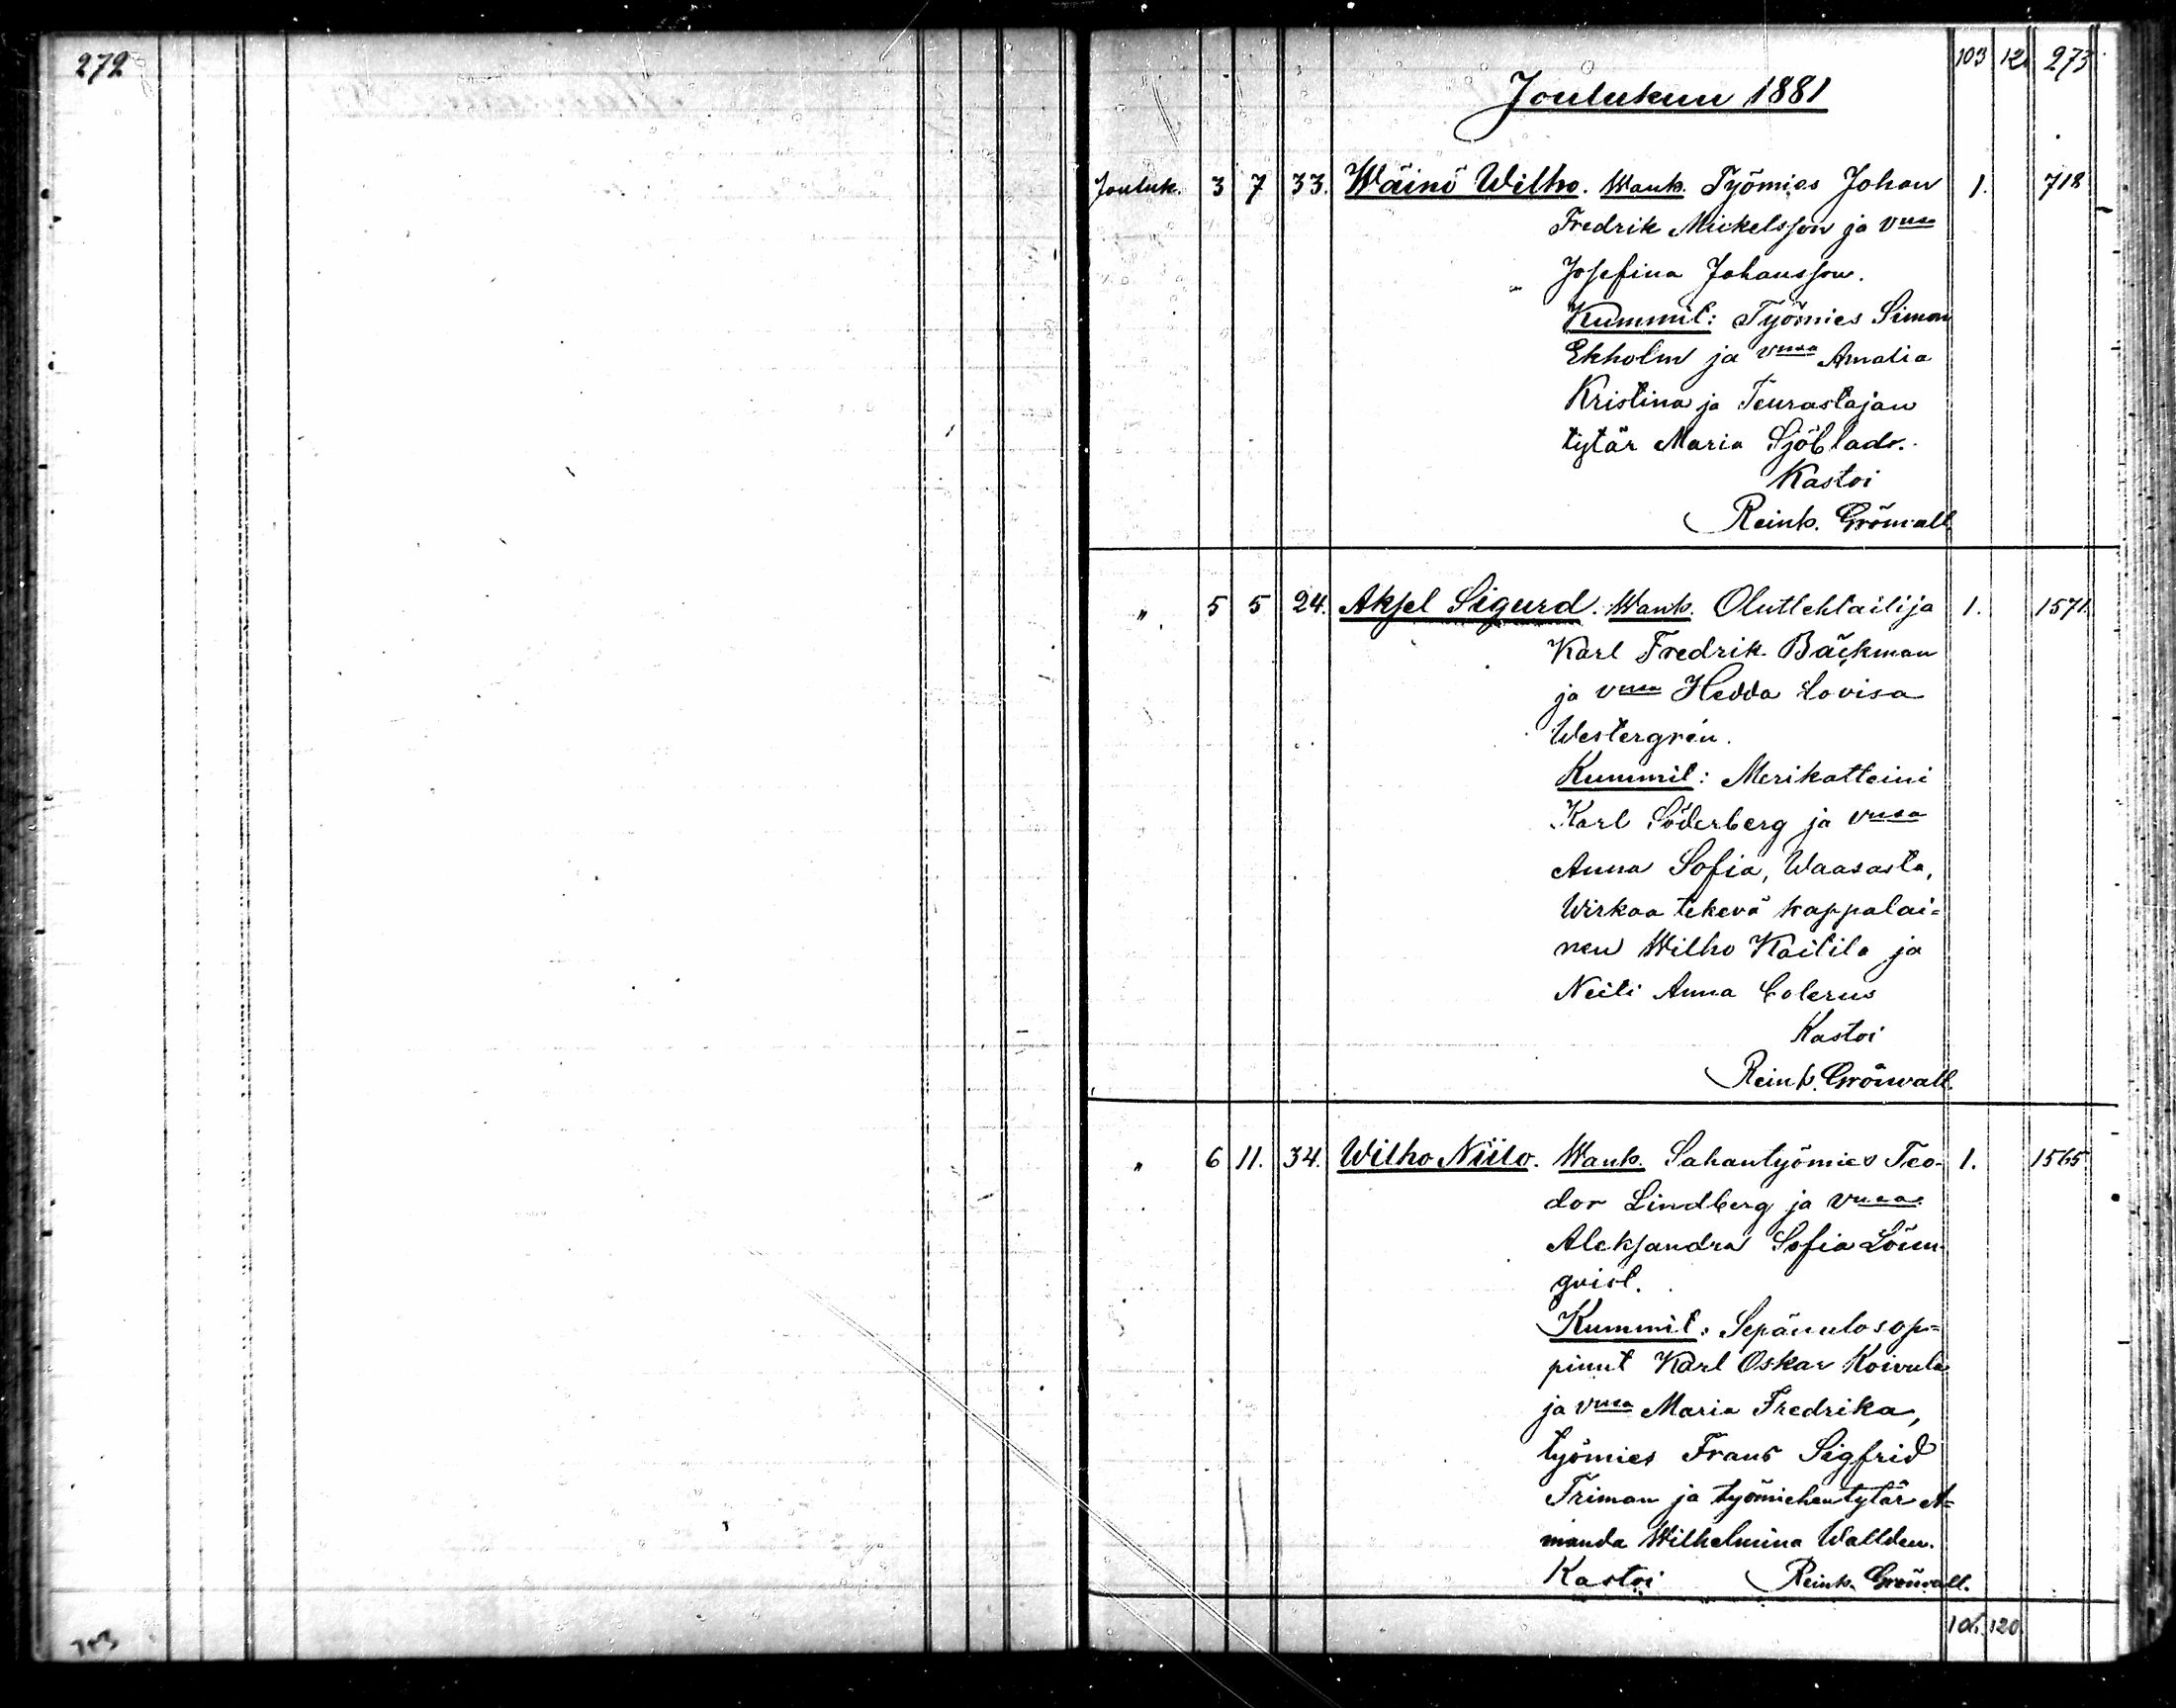 272
103 12 273
Joulukuu 1881
Jouluk. 3 7 33. Wäinö Wilho. Wanh. Työmies Johan 1. 718
Fredrik Mickelsson ja vmsa
Josefina Johansson.
Kummit: Työmies Simon
Ekholm ja vmsa Amalia
Kristina ja Teurastajan
tytär Maria Sjöblad.
Kastoi
Reinh. Grönvall.
" 5 5 24. Aksel Sigurd. Wanh. Oluttehtailija 1. 1571.
Karl Fredrik Bäckman
ja vmsa Hedda Lovisa
Westergrén.
Kummit: Merikatteini
Karl Söderberg ja vmsa
Anna Sofia, Waasasta,
Wirkaa tekevä kappalai=
nen Wilho Kailila ja
Neiti Anna Colerus
Kastoi
Reinh. Grönvall.
" 6 11. 34. Wilho Niilo. Wanh. Sahantyömies Teo- 1. 1565
dor Lindberg ja vmsa
Aleksandra Sofia Löun-
qvist.
Kummit: Sepänulosop=
pinut Karl Oskar Koivula
ja vmsa Maria Fredrika,
työmies Frans Sigfrid
Friman ja työmiehentytär A=
manda Wilhelmina Wallden.
Kastoi Reinh. Grönvall.
106. 120.